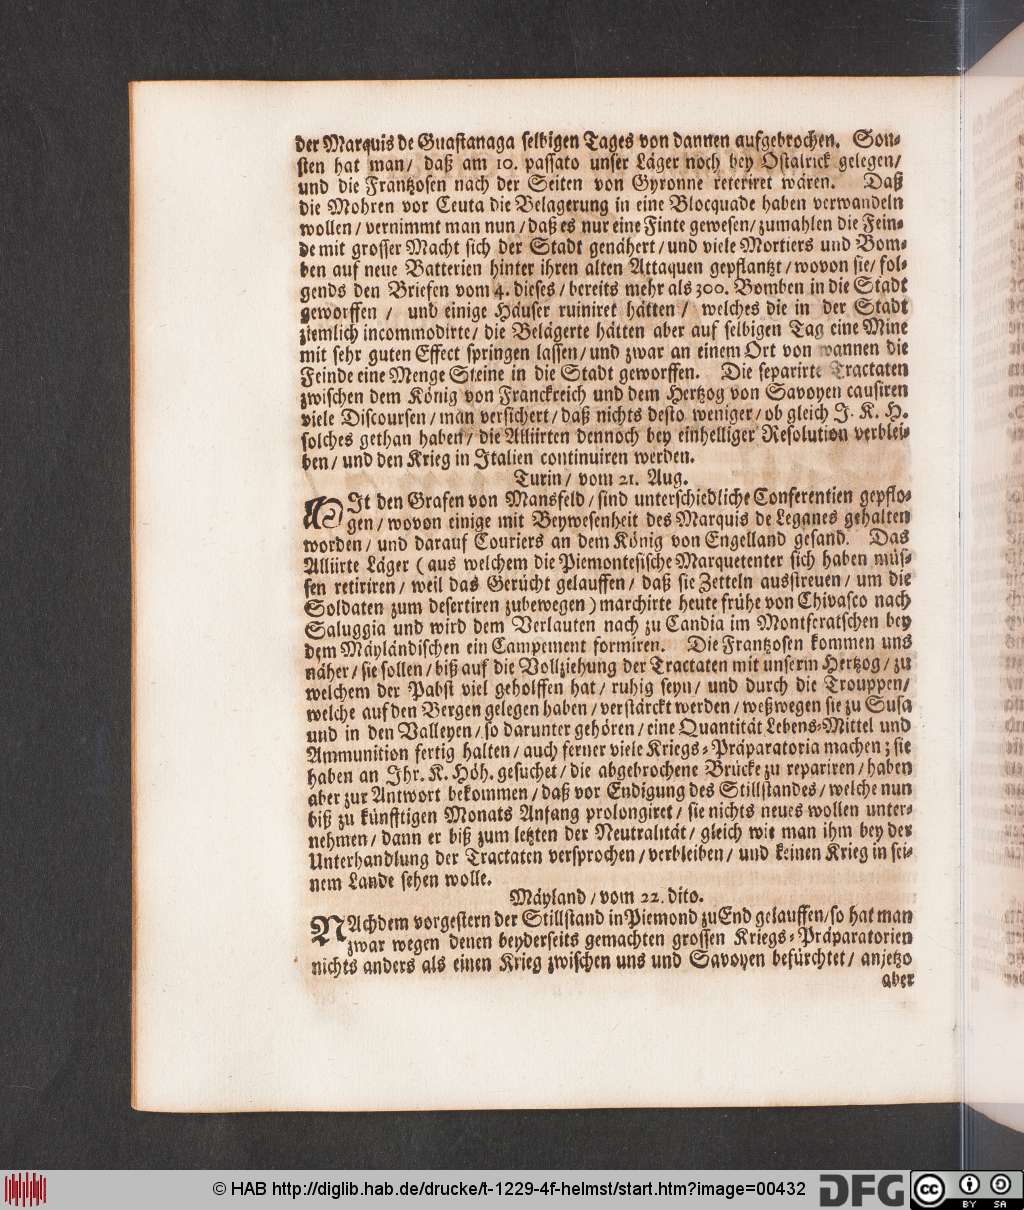 der Marquis de Guastanaga selbigen Tages von dannen aufgebrochen. Son-
sten hat man/ daß am 10. passato unser Läger noch bey Ostalrick gelegen/
und die Frantzosen nach der Seiten von Gyronne reteriret wären. Daß
die Mohren vor Ceuta die Belagerung in eine Blocquade haben verwandeln
wollen / vernimmt man nun / daß es nur eine Finte gewesen/ zumahlen die Fein-
de mit grosser Macht sich der Stadt genähert / und viele Mortiers und Bom-
ben auf neue Batterien hinter ihren alten Attaquen gepflantzt / wovon sie/ fol-
gends den Briefen vom 4. dieses / bereits mehr als 300. Bomben in die Stadt
geworffen / und einige Häuser ruiniret hätten / welches die in der Stadt
ziemlich incommodirte/ die Belägerte hätten aber auf selbigen Tag eine Mine
mit sehr guten Effect springen lassen / und zwar an einem Ort von wannen die
Feinde eine Menge Steine in die Stadt geworffen. Die separirte Tractaten
zwischen dem König von Franckreich und dem Hertzog von Savoyen causiren
viele Discoursen / man versichert / daß nichts desto weniger / ob gleich J. K. H.
solches gethan haben / die Alliirten dennoch bey einhelliger Resolution verblei-
ben / und den Krieg in Italien continuiren werden.
Turin / vom 21. Aug.
Mit den Grafen von Mansfeld / sind unterschiedliche Conferentien gepflo-
gen / wovon einige mit Beywesenheit des Marquis de Leganes gehalten
worden / und darauf Couriers an dem König von Engelland gesand. Das
Alliirte Läger ( aus welchem die Piemontesische Marquetenter sich haben müs-
sen retiriren / weil das Gerücht gelauffen / daß sie Zetteln ausstreuen / um die
Soldaten zum desertiren zubewegen ) marchirte heute frühe von Chivasco nach
Saluggia und wird dem Verlauten nach zu Candia im Montferatschen bey
dem Mäyländischen ein Campement formiren. Die Frantzosen kommen uns
näher / sie sollen / biß auf die Vollziehung der Tractaten mit unserm Hertzog / zu
welchem der Pabst viel geholffen hat / ruhig seyn / und durch die Trouppen/
welche auf den Bergen gelegen haben / verstärckt werden / weßwegen sie zu Susa
und in den Valleyen / so darunter gehören / eine Quantität Lebens-Mittel und
Ammunition fertig halten / auch ferner viele Kriegs-Präparatoria machen; sie
haben an Ihr. K. Höh. gesuchet / die abgebrochene Brücke zu repariren / haben
aber zur Antwort bekommen / daß vor Endigung des Stillstandes / welche nun
biß zu künfftigen Monats Anfang prolongiret / sie nichts neues wollen unter-
nehmen / dann er biß zum letzten der Neutralität / gleich wie man ihm bey der
Unterhandlung der Tractaten versprochen / verbleiben / und keinen Krieg in sei-
nem Lande sehen wolle.
Mäyland / vom 22. dito.
NAchdem vorgestern der Stillstand in Piemond zu End gelauffen/ so hat man
zwar wegen denen beyderseits gemachten grossen Kriegs-Präparatorien
nichts anders als einen Krieg zwischen uns und Savoyen befürchtet / anjetzo
aber
© HAB http://diglib.hab.de/drucke/t-1229-4f-helmst/start.htm?image=00432
DFG
cc
BY SA